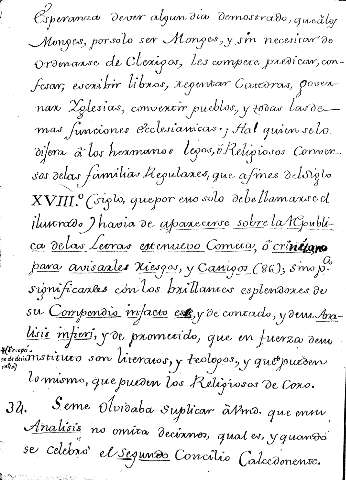 Esperanza de ver algun dia demostrado, que à los
Monges, por solo ser Monges, y sin necesitar de
Ordenarse de Clerigos, les compete predicar, con-
fesar, escribir libros, regentar Catedras, gover-
nar Yglesias, convertir pueblos, y todas las de-
mas funciones ecclesiasticas; Ha! quien se lo
dijera à los hermanos legos, ò Religiosos Conver-
sos de las familias Regulares, que a fines del Siglo
XVIII.º (siglo, que por eso solo debe llamarse el
ilustrado) havia de aparecerse sobre la Republi-
ca de las Letras este nuevo Cometa, ò
para avisarles riesgos, y Castigos (86), sino pª.
significarles con los brillantes esplendores de
su Compendio in facto esse, y de contado, y de su Ana-
lisis in fieri, y de prometido, que en fuerza de su
instituto son literatos, y teologos, y que pueden
lo mismo, que pueden los Religiosos de Coro.
32. Se me olvidaba suplicar à Vmd. que en su
Analisis no omita decirnos, qual es, y quando
se celebró el segundo Concilio Calcedonense.